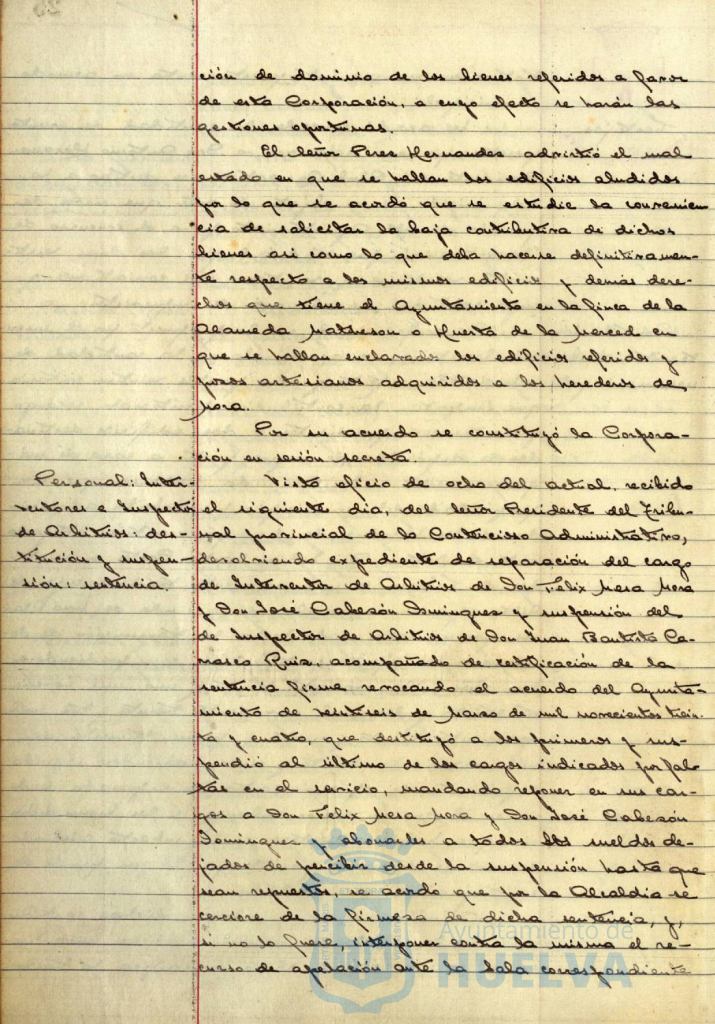 ción de dominio de los bienes referidos a favor
de esta Corporación, a cuyo efecto se harán las
gestiones oportunas.
El Señor Perez Hernandez advirtió el mal
estado en que se hallan los edificios aludidos
por lo que se acordó que se estudie la convenien-
cia de solicitar la baja contributiva de dichos
bienes asi como lo que deba hacerse definitivamen-
te respecto a los mismos edificios y demás dere-
chos que tiene el Ayuntamiento en la finca de la
Alameda Matheson o Huerta de la Merced en
que se hallan enclavados los edificios referidos y
pozos artesianos adquiridos a los herederos de
Mora.
Por su acuerdo se constituyó la Corpora-
ción en sesión secreta.
Personal: Inter-
ventores e Inspector
de Arbitrios: des-
titución y suspen-
sión: sentencia.
Visto oficio de ocho del actual, recibido
el siguiente dia, del Señor Presidente del Tribu-
nal provincial de lo Contencioso Administrativo,
devolviendo expediente de separación del cargo
de Interventor de Arbitrios de Don Felix Mesa Mora
y Don José Cabezón Dominguez y suspensión del
de Inspector de Arbitrios de Don Juan Bautista Ca-
rrasco Ruiz, acompañado de certificación de la
sentencia firme revocando el acuerdo del Ayunta-
miento de veintiseis de Marzo de mil novecientos trein-
ta y cuatro, que destituyó a los primeros y sus-
pendió al último de los cargos indicados por fal-
tas en el servicio, mandando reponer en sus car-
gos a Don Felix Mesa Mora y Don José Cabezón
Dominguez y abonarles a todos los sueldos de-
jados de percibir desde la suspensión hasta que
sean repuestos, se acordó que por la Alcaldia se
cerciore de la firmeza de dicha sentencia, y,
si no lo fuere, interponer contra la misma el re-
curso de apelación ante la Sala correspondiente
Ayuntamiento de
HUELVA